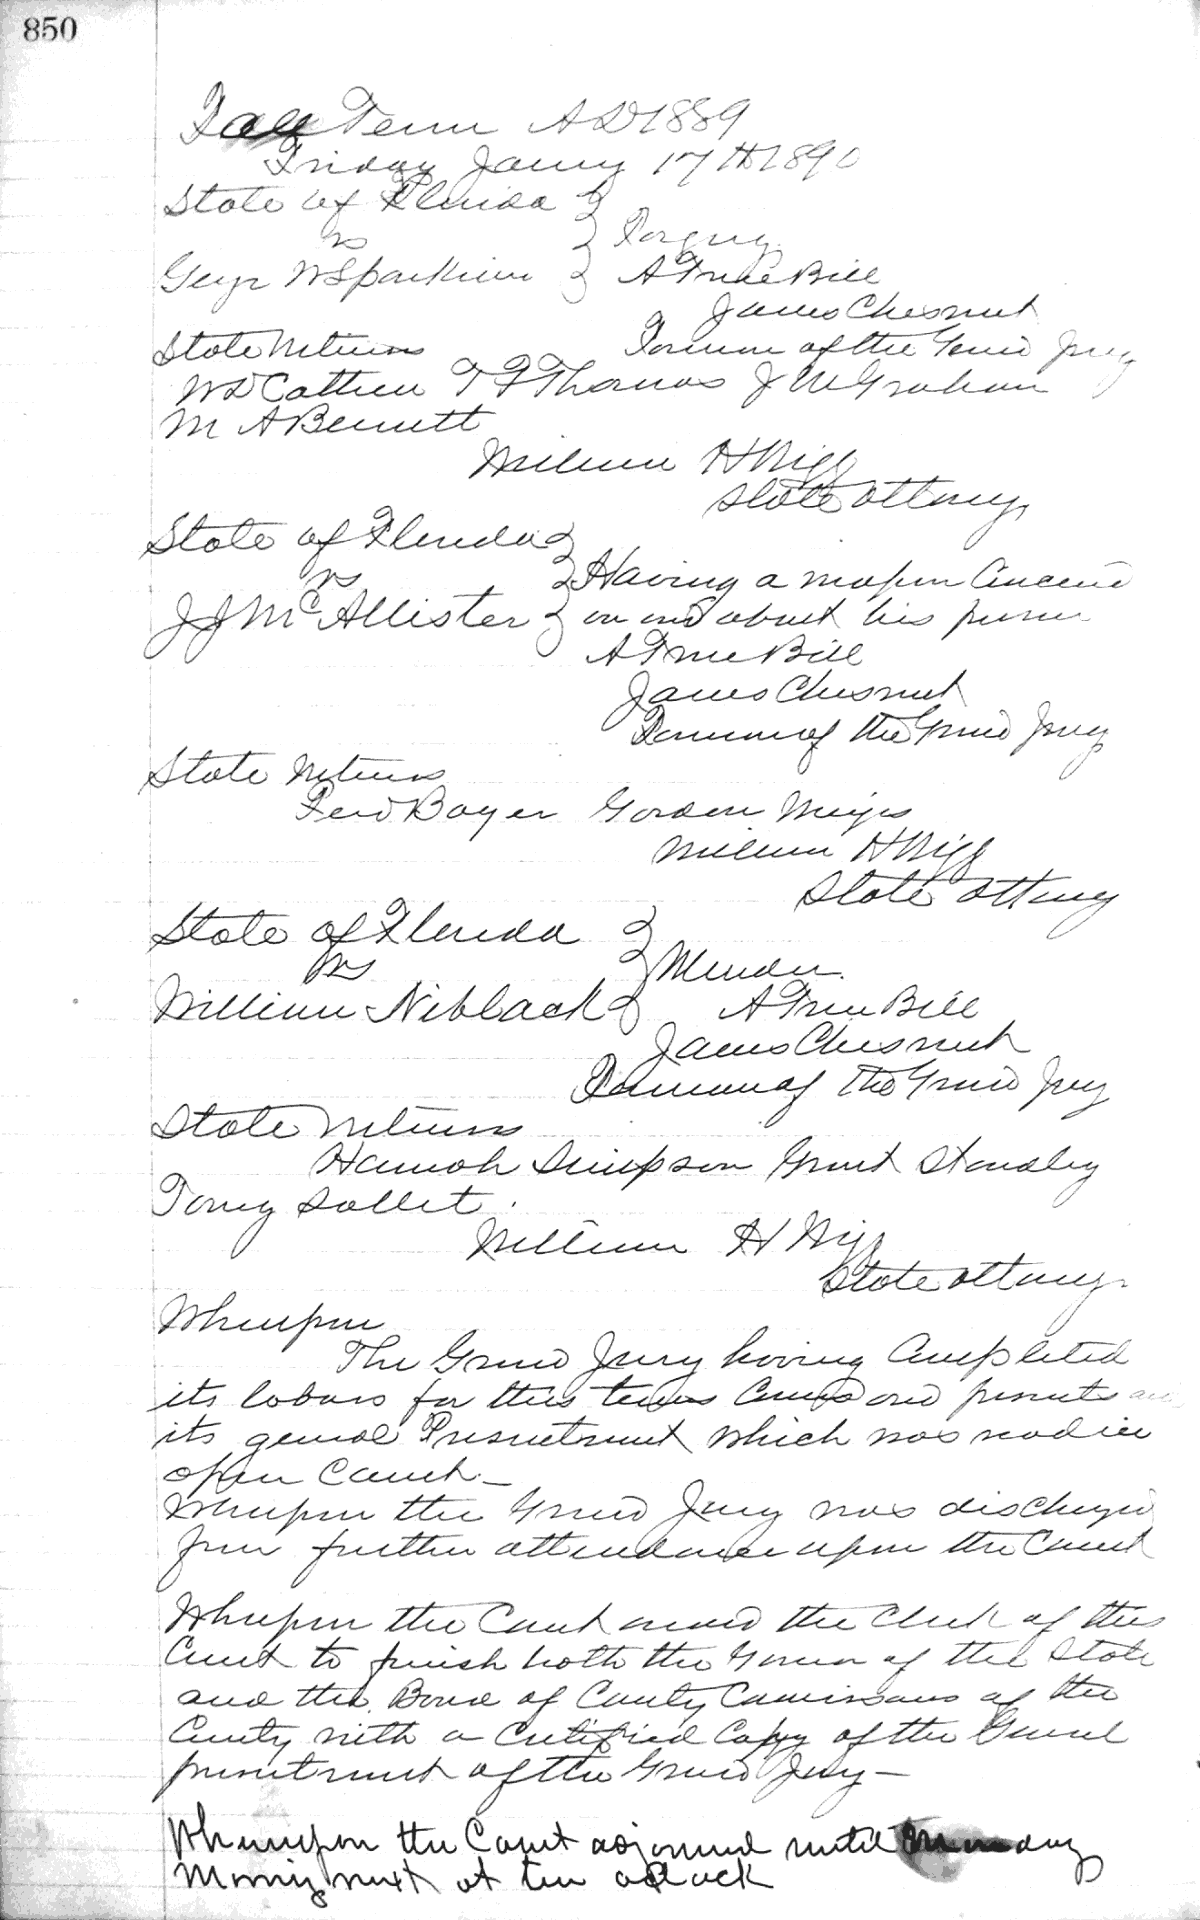 850
Fall Term AD 1889
Friday Jany 17th 1890
State of Florida
vs
Forgery
Geo W Sparkman
A True Bill
James Chesnut
State Witness
Forman of the Grand Jury
W D Cathen T F Thomas J M Graham
M A Bennett
William H Wigg
State Attorney
State of Florida
vs
Having a weapon Concealed
J J McAllister
on and about his person
A True Bill
James Chesnut
Forman of the Grand Jury
State Witness
Ferd Bayer Gordon Meigs
William H Wigg
State Attorney
State of Florida
vs
Murder
William Niblack
A True Bill
James Chesnut
Forman of the Grand Jury
State Witness
Hannah Simpson Grant Standley
Tony Sallet
William H Wigg
State Attorney
Whereupon
The Grand Jury having Completed
its labors for this term Comes and presents
its general Presentment which was read in
open Court –
Whereupon the Grand Jury was discharged
from further attendance upon the Court
Whereupon the Court ordered the Clerk of this
Court to furnish both the Governor of the State
and the Board of County Commissioners of the
County with a Certified Copy of the General
presentment of the Grand Jury –
Whereupon the Court adjourned until Monday
Morning next at ten oclock